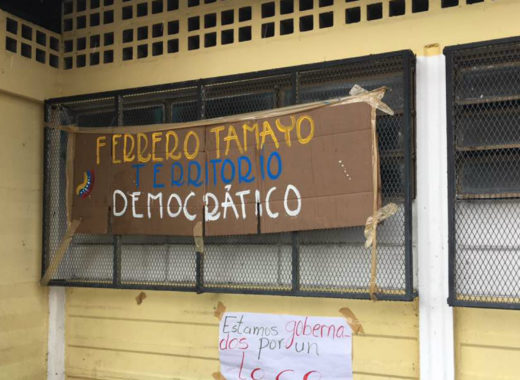 FERRERO TAMAYO
TERRITORIO
DEMOCRÁTICO
Estamos goberna
dos por un
Loco